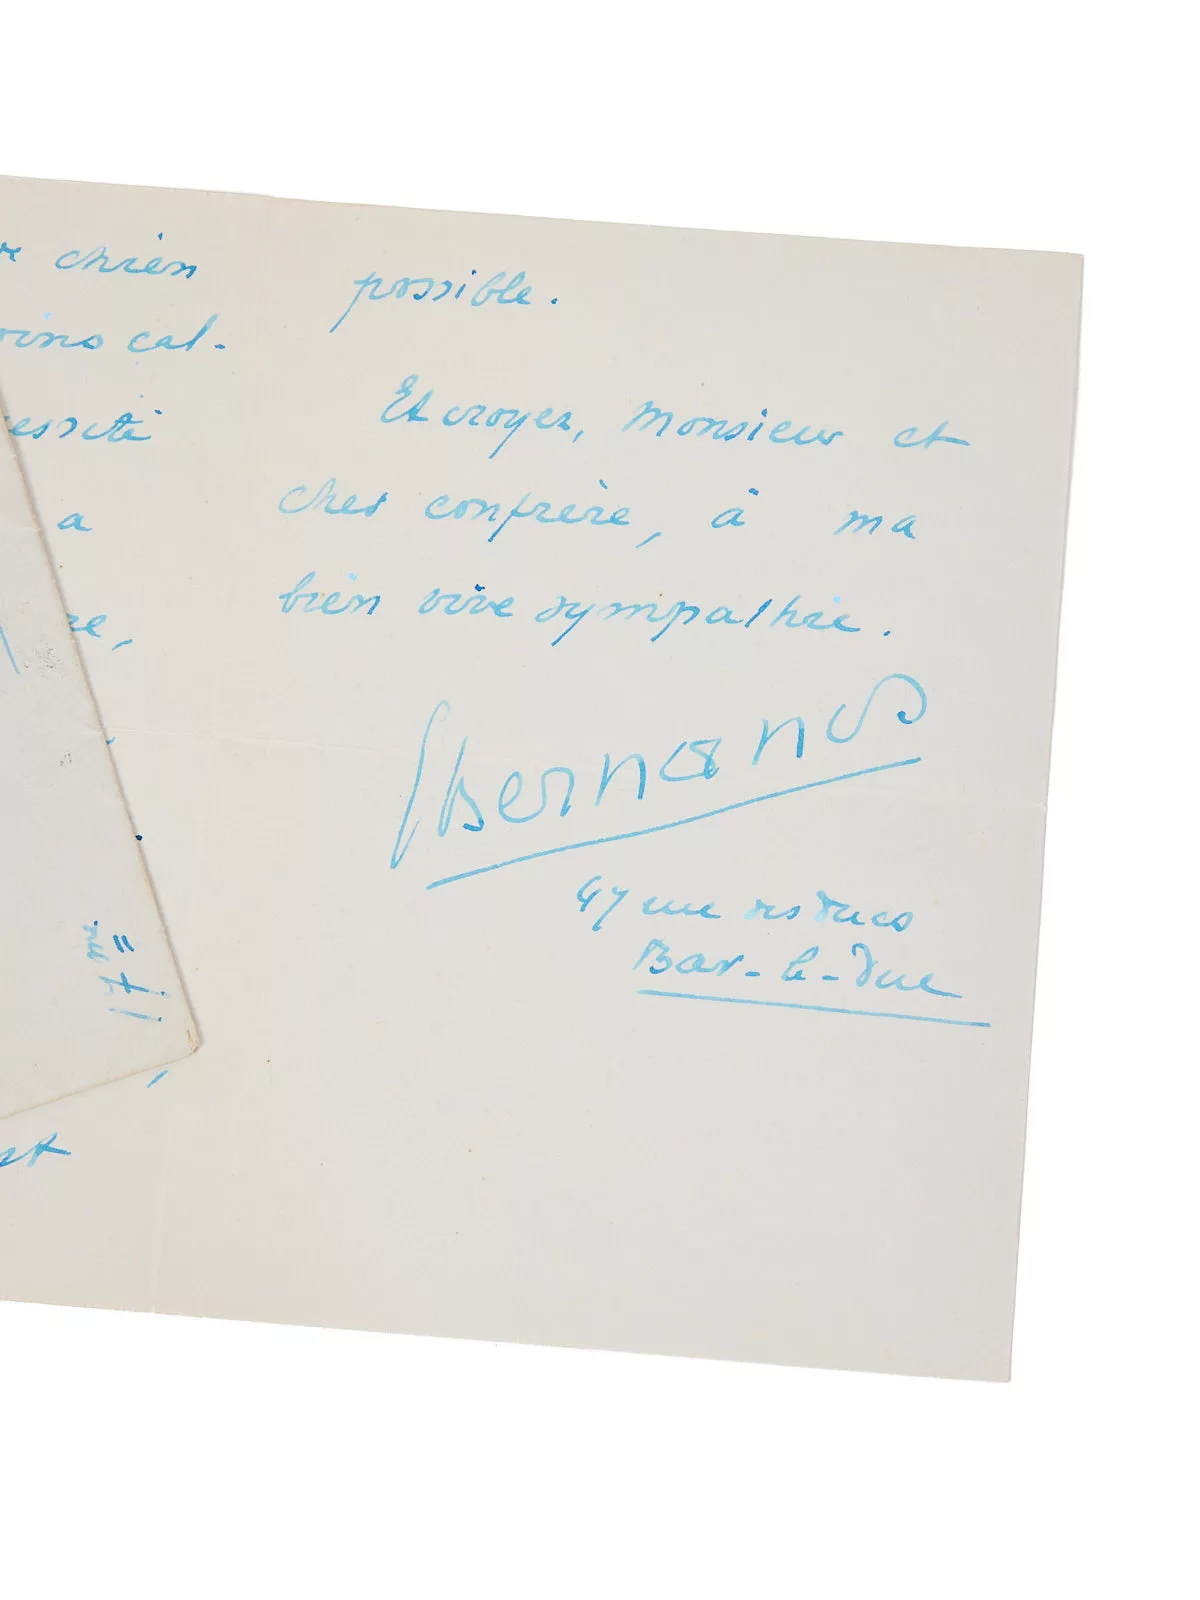 chien
cal-
a
possible.
Et croyez, Monsieur et
cher confrère, à ma
bien vive sympathie.
GBernanos
47 rue des ducs
Bar-le-duc